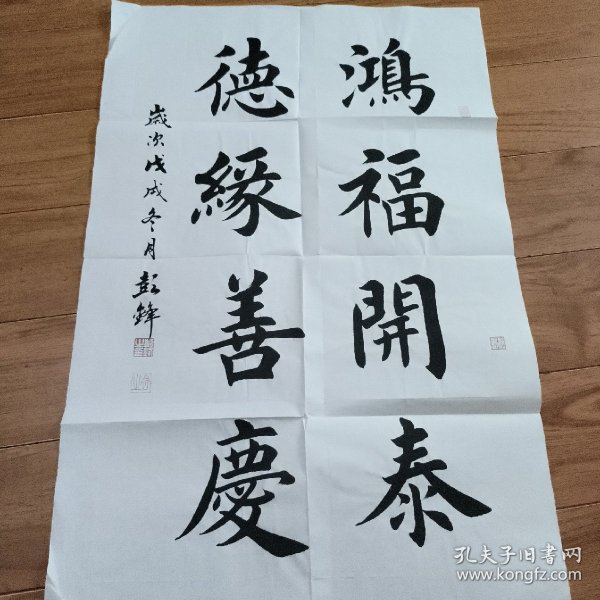 鴻福開泰
德緣善慶
歲次戊戌冬月彭鋒
孔夫子旧书网
www.kongfz.com